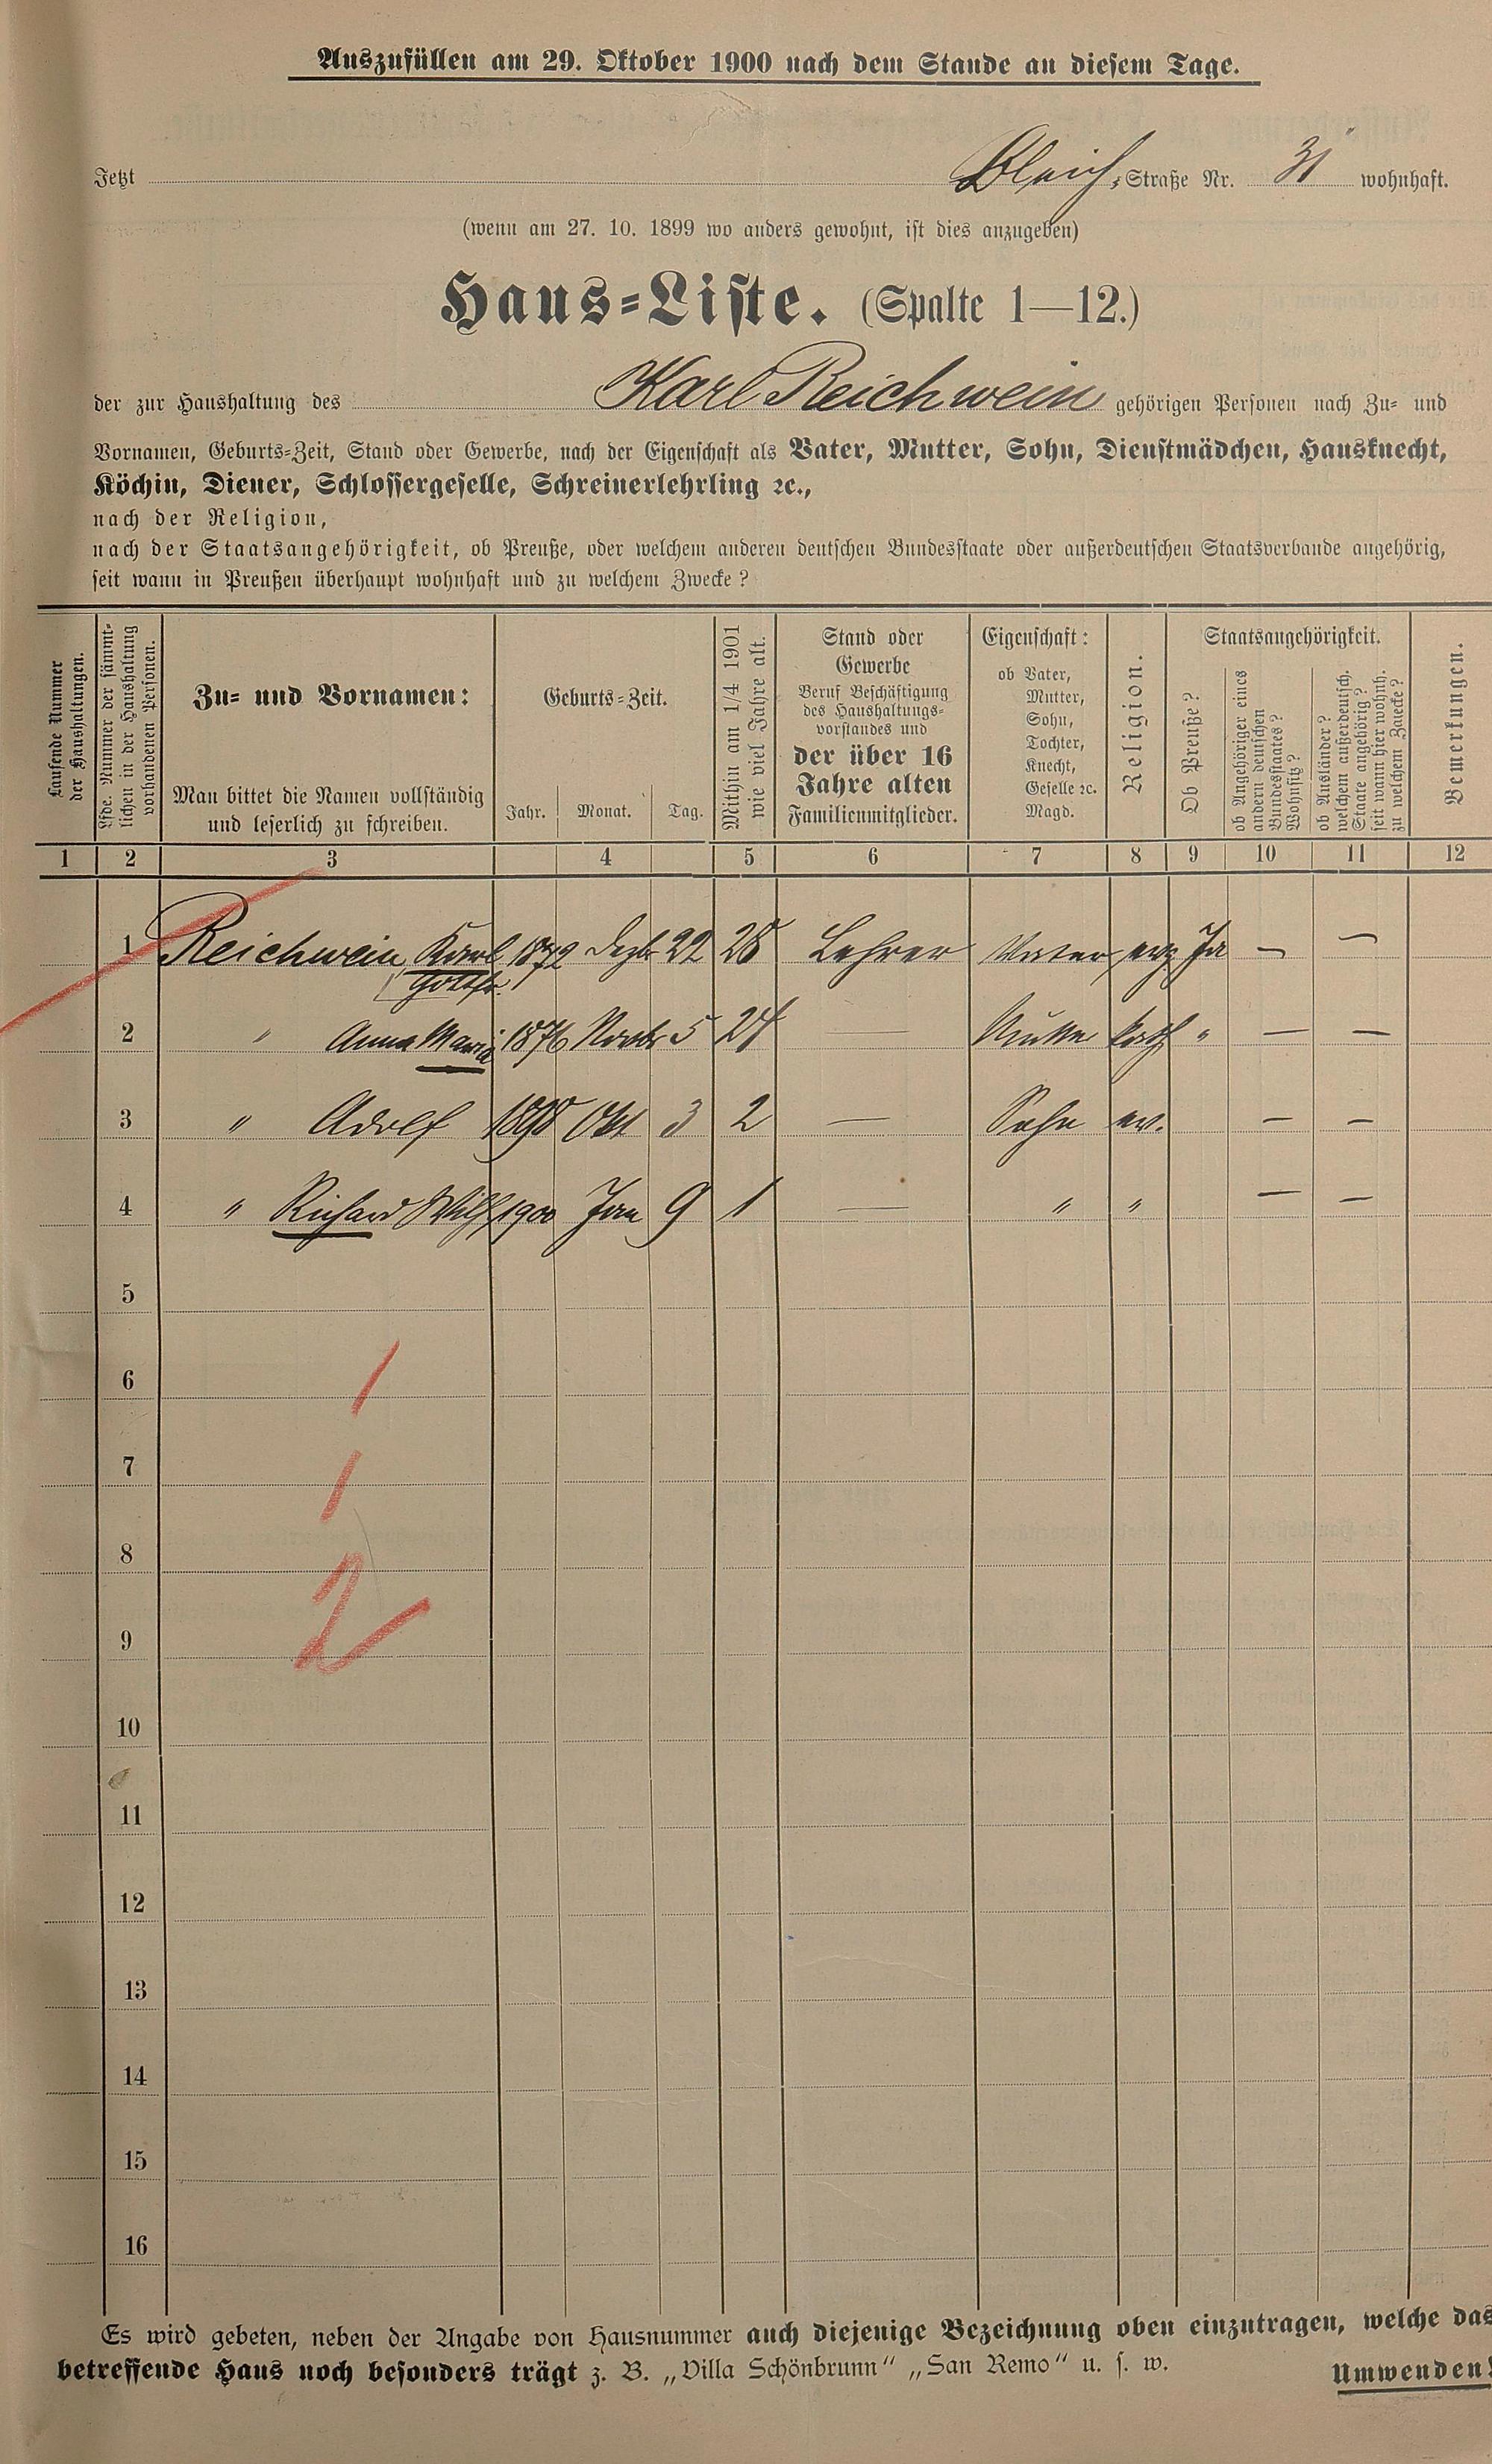 Auszufüllen am 29. Oktober 1900 nach dem Stande an diesem Tage.
Jetzt Bleich-Straße Nr. 31 wohnhaft.
(wenn am 27. 10. 1899 wo anders gewohnt, ist dies anzugeben)
Haus-Liste. (Spalte 1—12.)
der zur Haushaltung des Karl Reichwein gehörigen Personen nach Zu- und
Vornamen, Geburts-Zeit, Stand oder Gewerbe, nach der Eigenschaft als Vater, Mutter, Sohn, Dienstmädchen, Hausknecht,
Köchin, Diener, Schlossergeselle, Schreinerlehrling ꝛc.,
nach der Religion,
nach der Staatsangehörigkeit, ob Preuße, oder welchem anderen deutschen Bundesstaate oder außerdeutschen Staatsverbande angehörig,
seit wann in Preußen überhaupt wohnhaft und zu welchem Zwecke?
Laufende Nummer
der Haushaltungen.
Lfde. Nummer der sämmt-
lichen in der Haushaltung
vorhandenen Personen.
Zu- und Vornamen:
Man bittet die Namen vollständig
und leserlich zu schreiben.
Geburts-Zeit.
Jahr. Monat. Tag.
Mithin am 1/4 1901
wie viel Jahre alt.
Stand oder
Gewerbe
Beruf Beschäftigung
des Haushaltungs-
vorstandes und
der über 16
Jahre alten
Familienmitglieder.
Eigenschaft:
ob Vater,
Mutter,
Sohn,
Tochter,
Knecht,
Geselle ꝛc.
Magd.
Religion.
Staatsangehörigkeit.
Ob Preuße?
ob Angehöriger eines
andern deutschen
Bundesstaates?
Wohnsitz?
ob Ausländer?
welchem außerdeutsch.
Staate angehörig?
seit wann hier wohnh.
zu welchem Zwecke?
Bemerkungen.
1 2 3 4 5 6 7 8 9 10 11 12
1 Reichwein, Karl 1872 Dezbr 22 28 Lehrer Vater evg Ja — —
Gottfr.
2 " Anna Maria 1876 Novbr 5 24 — Mutter kath " — —
3 " Adolf 1898 Okt 3 2 — Sohn ev. — —
4 " Richard Wilh 1900 Jan 9 1 — " " — —
5
6
1
7
1
8
2
9
10
11
12
13
14
15
16
Es wird gebeten, neben der Angabe von Hausnummer auch diejenige Bezeichnung oben einzutragen, welche das
betreffende Haus noch besonders trägt z. B. „Villa Schönbrunn“ „San Remo“ u. s. w.
Umwenden!